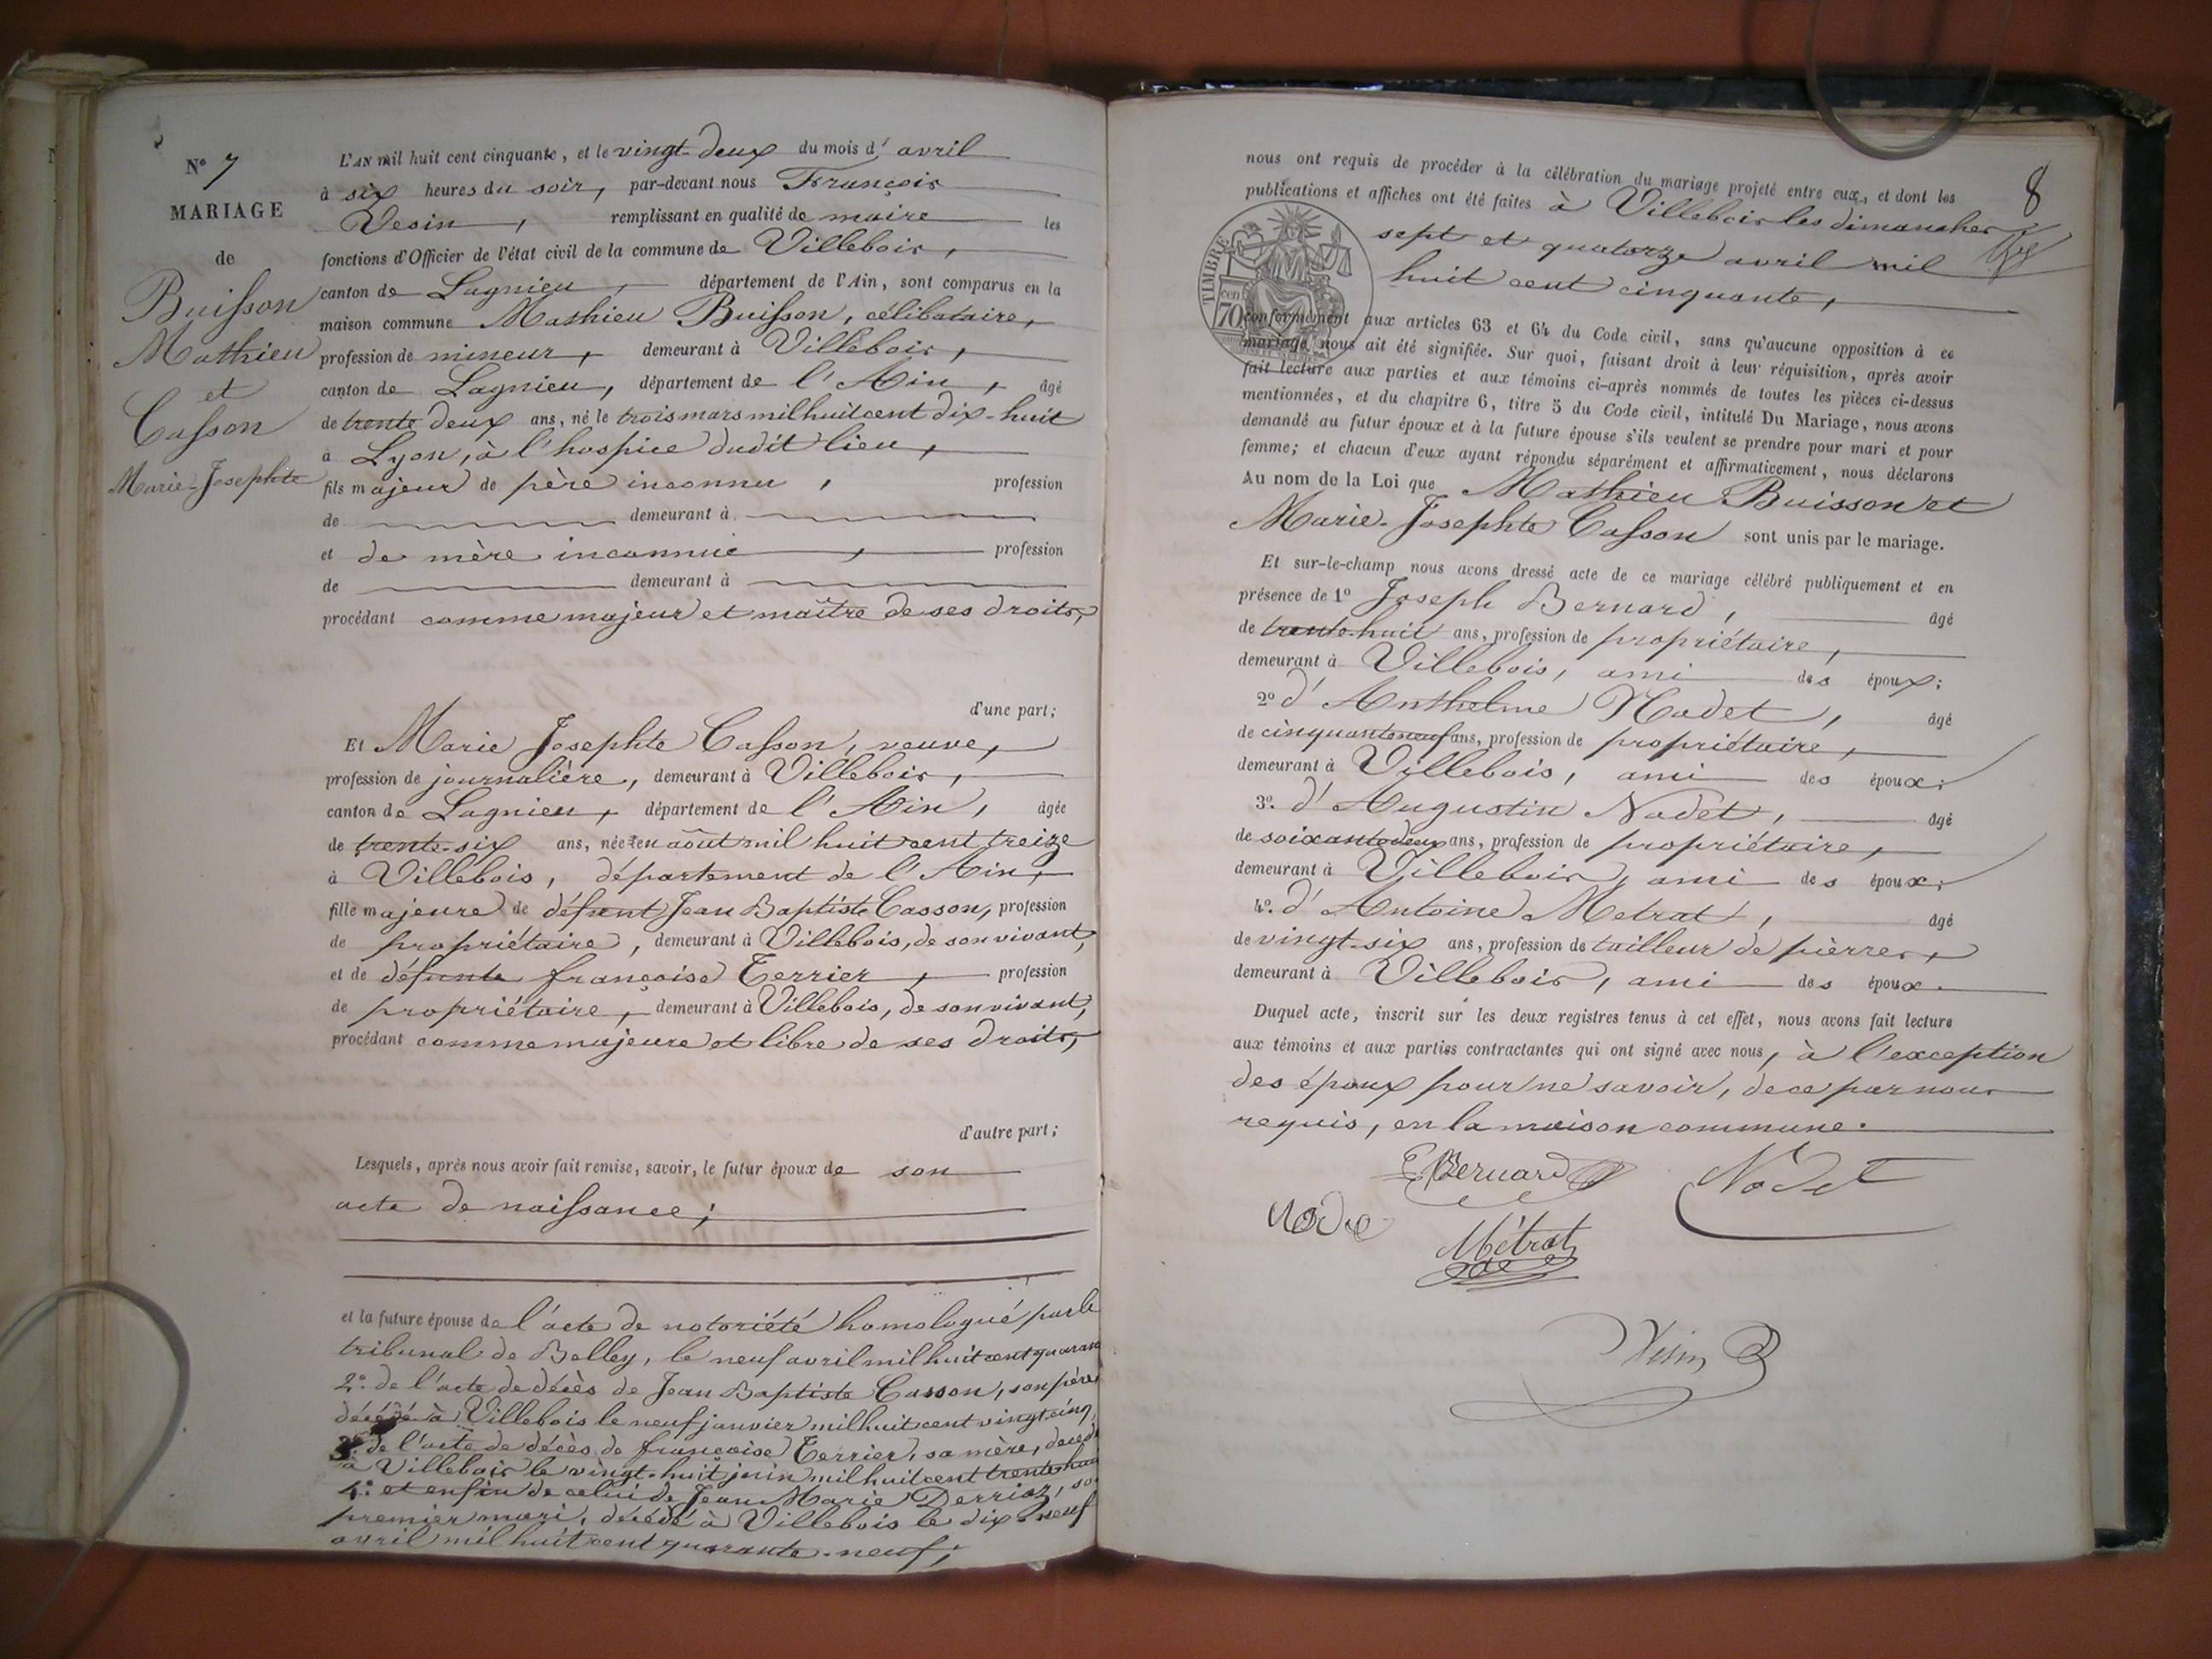 N° 7
MARIAGE
de
Buisson
Mathieu
et
Casson
Marie-Josephte
L'AN mil huit cent cinquante, et le vingt-deux du mois d'avril
à six heures du soir, par-devant nous François
Vesin, remplissant en qualité de maire les
fonctions d'Officier de l'état civil de la commune de Villebois,
canton de Lagnieu, département de l'Ain, sont comparus en la
maison commune Mathieu Buisson, célibataire,
profession de mineur, demeurant à Villebois,
canton de Lagnieu, département de l'Ain, âgé
de trente deux ans, né le trois mars mil huit cent dix-huit
à Lyon, à l'hospice dudit lieu,
fils majeur de père inconnu, profession
de demeurant à
et de mère inconnue, profession
de demeurant à
procédant comme majeur et maître de ses droits,
d'une part;
Et Marie Josephte Casson, veuve,
profession de journalière, demeurant à Villebois,
canton de Lagnieu, département de l'Ain, âgée
de trente-six ans, née en août mil huit cent treize
à Villebois, département de l'Ain,
fille majeure de défunt Jean Baptiste Casson, profession
de propriétaire, demeurant à Villebois, de son vivant,
et de défunte françoise Terrier, profession
de propriétaire, demeurant à Villebois, de son vivant,
procédant comme majeure et libre de ses droits,
d'autre part;
Lesquels, après nous avoir fait remise, savoir, le futur époux de son
acte de naissance;
et la future épouse de l'acte de notoriété homologué par le
tribunal de Belley, le neuf avril mil huit cent
2° de l'acte de décès de Jean Baptiste Casson, son père
décédé à Villebois le neuf janvier mil huit cent vingt-cinq,
3° de l'acte de décès de françoise Terrier, sa mère,
à Villebois le vingt-huit juin mil huit cent
4° et enfin de celui de Jean Marie Derrioz,
premier mari, décédé à Villebois le dix-neuf
avril mil huit cent quarante-neuf;
8
nous ont requis de procéder à la célébration du mariage projeté entre eux, et dont les
publications et affiches ont été faites à Villebois les dimanches
sept et quatorze avril mil
huit cent cinquante,
TIMBRE
cen.
70
conformément aux articles 63 et 64 du Code civil, sans qu'aucune opposition à ce
mariage nous ait été signifiée. Sur quoi, faisant droit à leur réquisition, après avoir
fait lecture aux parties et aux témoins ci-après nommés de toutes les pièces ci-dessus
mentionnées, et du chapitre 6, titre 5 du Code civil, intitulé Du Mariage, nous avons
demandé au futur époux et à la future épouse s'ils veulent se prendre pour mari et pour
femme; et chacun d'eux ayant répondu séparément et affirmativement, nous déclarons
Au nom de la Loi que Mathieu Buisson et
Marie-Josephte Casson sont unis par le mariage.
Et sur-le-champ nous avons dressé acte de ce mariage célébré publiquement et en
présence de 1° Joseph Bernard, âgé
de trente-huit ans, profession de propriétaire,
demeurant à Villebois, ami des époux;
2° d'Anthelme Nodet, âgé
de cinquante neuf ans, profession de propriétaire,
demeurant à Villebois, ami des époux;
3° d'Augustin Nodet, âgé
de soixante deux ans, profession de propriétaire,
demeurant à Villebois, ami des époux;
4° d'Antoine Metrat, âgé
de vingt-six ans, profession de tailleur de pierres,
demeurant à Villebois, ami des époux.
Duquel acte, inscrit sur les deux registres tenus à cet effet, nous avons fait lecture
aux témoins et aux parties contractantes qui ont signé avec nous, à l'exception
des époux pour ne savoir, de ce par nous
requis, en la maison commune.
Bernard Nodet
Métrat
Vesin